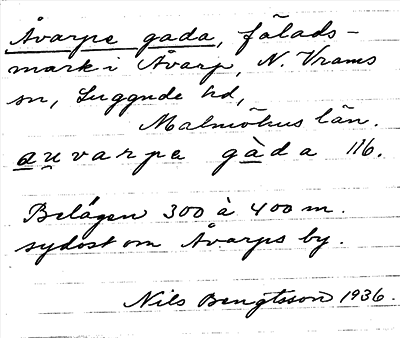 Åvarps gada, fälads-
mark i Åvarp, N. Vrams
sn, Luggude hd,
Malmöhus län.
auvarpa gàda 116.
Belägen 300 à 400 m.
sydost om Åvarps by.
Nils Bengtsson 1936.